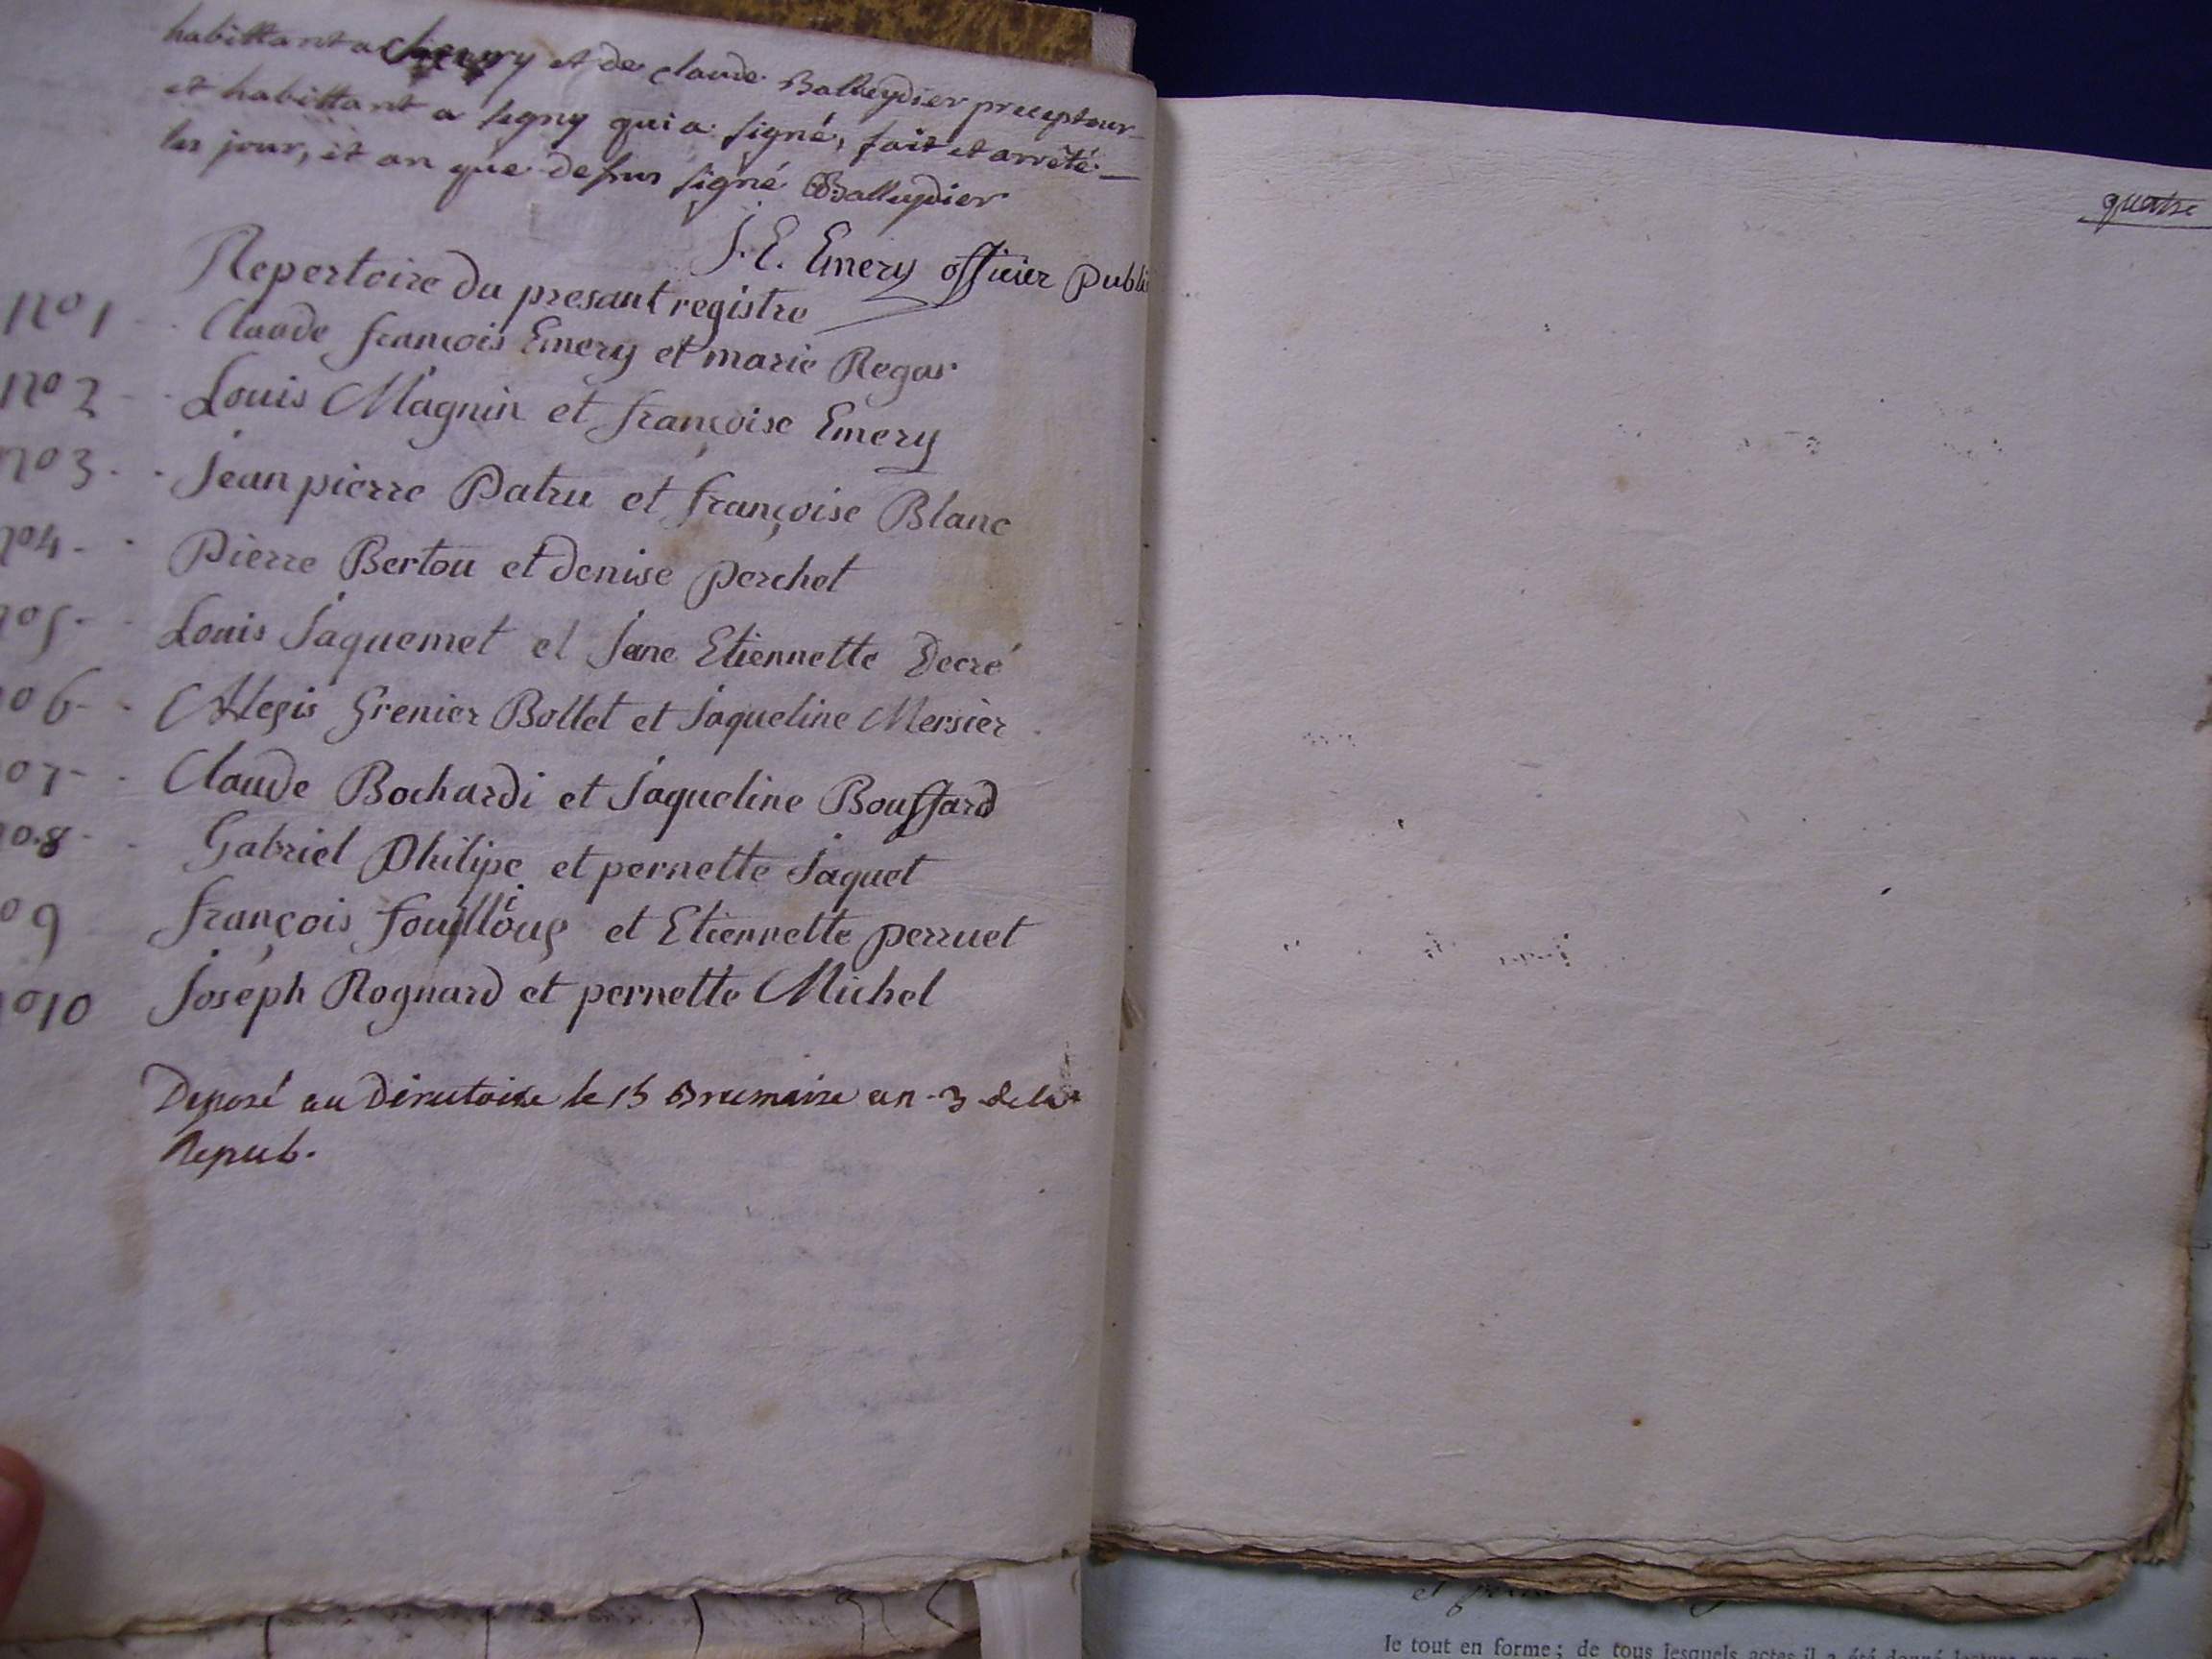 habittant a et de claude Balleydier precepteur
et habittant a segny qui a signé, fait et arrêté
les jour, et an que dessus signé Balleydier
J. E. Emery officier publi
Repertoire du presant registre
no 1 Claude françois Emery et marie Regas
no 2 Louis Magnin et françoise Emery
no 3 Jean pierre Patru et françoise Blanc
no 4 Pierre Bertou et denise perchet
no 5 Louis Jaquemet et Jane Etiennette Decré
no 6 Alexis Grenier Bollet et Jaqueline Mersier
no 7 Claude Bochardi et Jaqueline Bouffard
no 8 Gabriel Philipe et pernette Jaquet
no 9 françois et Etiennette perruet
no 10 Joseph Rognard et pernette Michel
Deposé au Directoire le 15 Brumaire an 3 de la
Repub.
quatre
et
le tout en forme ; de tous lesquels actes il a été donné lecture